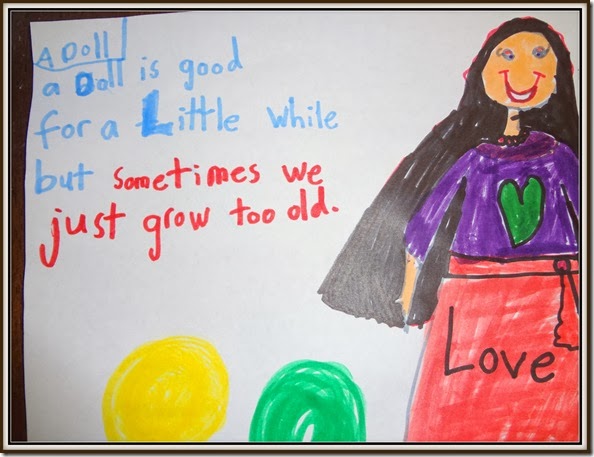 A Doll
a Doll is good
for a Little while
but sometimes we
just grow too old.
Love